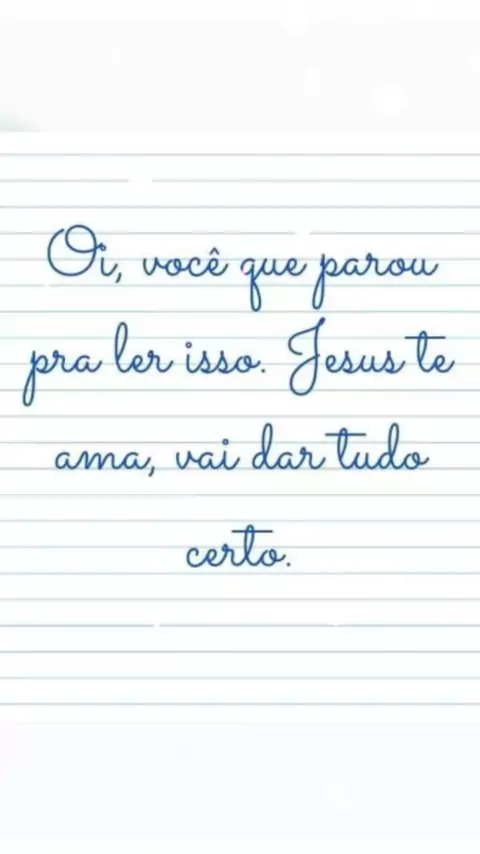 Oi, você que parou
pra ler isso. Jesus te
ama, vai dar tudo
certo.